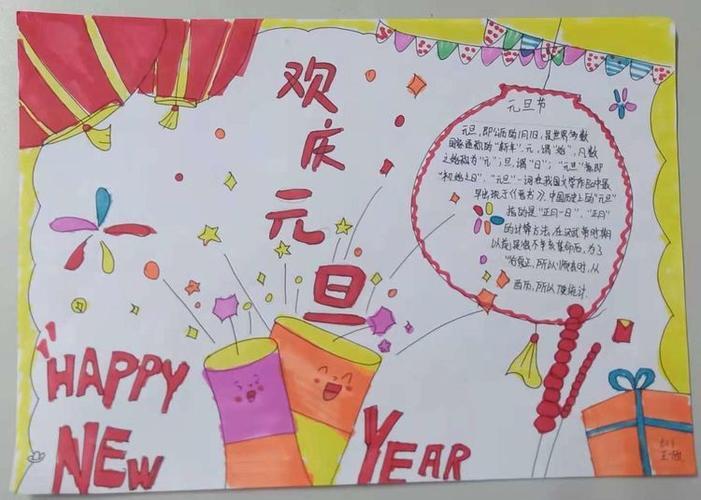 欢庆元旦
元旦节
元旦,即公历的1月1日,是世界多数
国家通称的“新年”.元,谓“始”,凡数
之始称为“元”;旦,谓“日”;“元旦”意即
“初始之日”.“元旦”一词在我国文学作品中最
早出现于《晋书》.中国历史上的“元旦”
指的是“正月一日”.“正月”
的计算方法,在汉武帝时期
以前是很不辛亥革命后,为了
“行夏正,所以顺农时,从
西历,所以便统计.
HAPPY
NEW YEAR